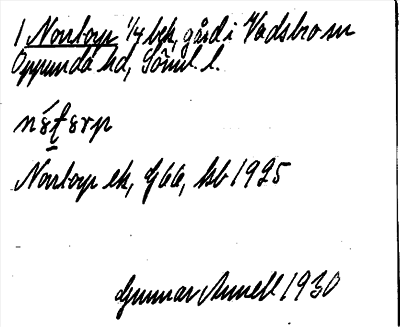 1 Norrtorp 1/4 bek, gård i Vadsbro sn
Oppunda hd, Söml. l.
Norrtorp ek, G66, hb 1925
Gunnar Annell 1930